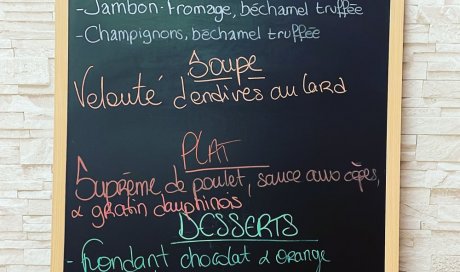 - Jambon-Fromage, béchamel truffée
- Champignons, béchamel truffée
Soupe
Velouté d'endives au lard
PLAT
Suprême de poulet, sauce aux cèpes,
& gratin dauphinois
DESSERTS
- Fondant chocolat & orange